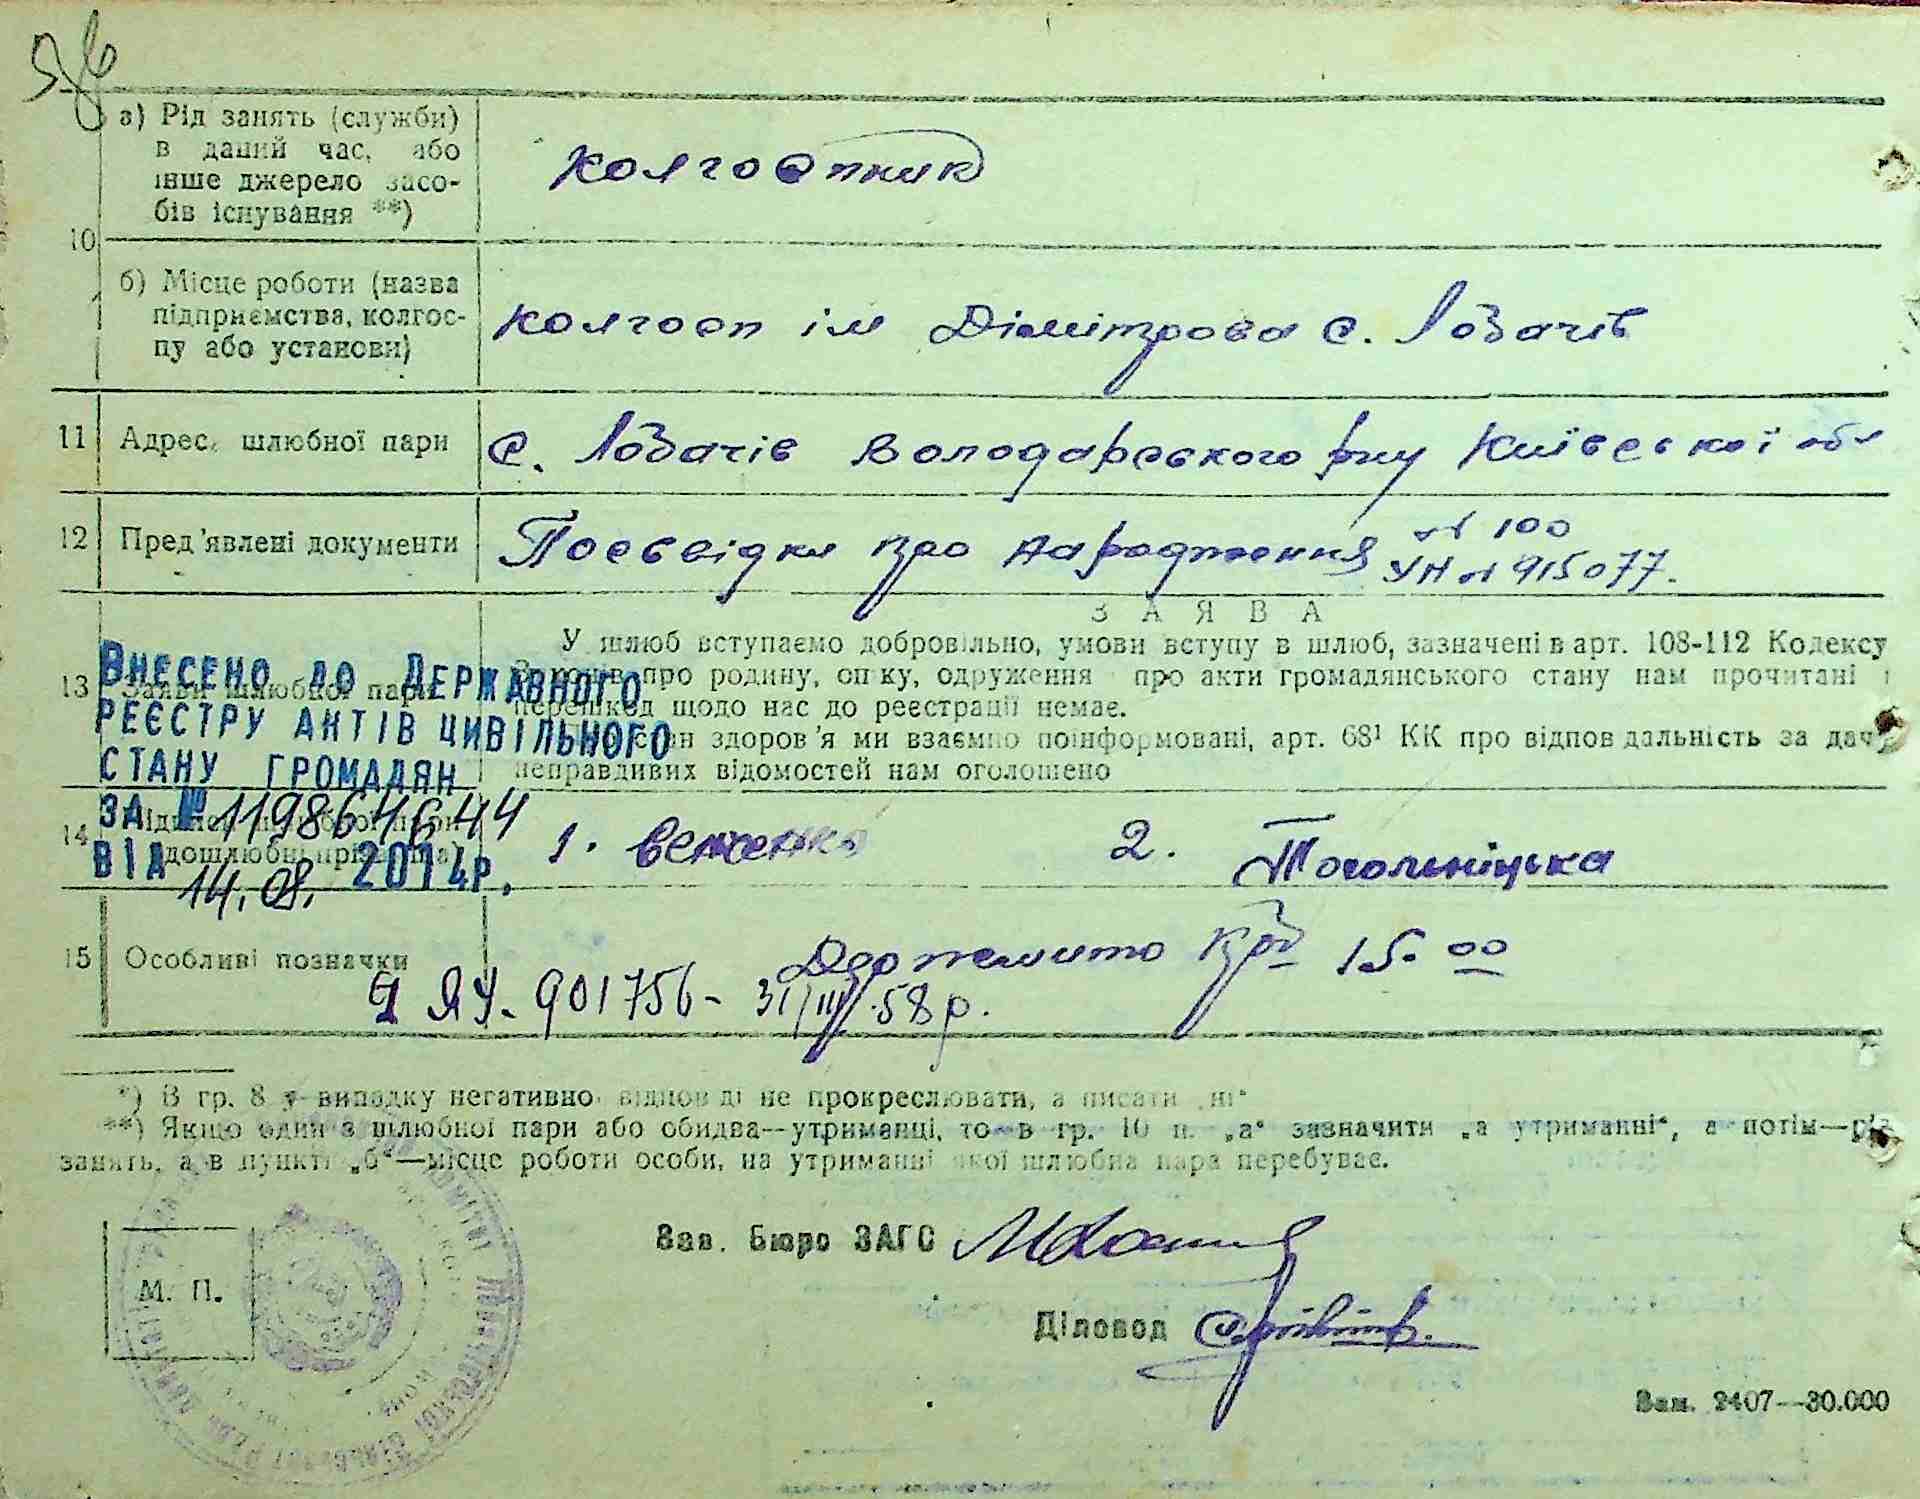 а) Рід занять (служби)
в даний час, або
інше джерело засо-
бів існування **)
колгоспник
10
б) Місце роботи (назва
підприємства, колгос-
пу або установи)
колгосп ім Дімітрова с. Лобачів
11 Адрес шлюбної пари
с. Лобачів Володарського р-ну Київської обл
12 Пред'явлені документи
Посвідки про народження № 100
УН № 915077.
ЗАЯВА
У шлюб вступаємо добровільно, умови вступу в шлюб, зазначені в арт. 108-112 Кодексу
про родину, опіку, одруження про акти громадянського стану нам прочитані і
перешкод щодо нас до реєстрації немає.
стан здоров'я ми взаємно поінформовані, арт. 68¹ КК про відповідальність за дачу
неправдивих відомостей нам оголошено
13 Заяви шлюбної пари
ВНЕСЕНО ДО ДЕРЖАВНОГО
РЕЄСТРУ АКТІВ ЦИВІЛЬНОГО
СТАНУ ГРОМАДЯН
ЗА № 1198647644
ВІД 14.08. 2014р.
14
дошлюбні прізвища)
1. 2.
15 Особливі позначки
Одержано крб 15-00
ЯУ-901756- 31/III.58р.
*) В гр. 8 у випадку негативної відповіді не прокреслювати, а писати „ні“
**) Якщо один з шлюбної пари або обидва—утриманці, то в гр. 10 п. „а“ зазначити „а утриманні“, а потім—рід
занять, а в пункті „б“—місце роботи особи, на утриманні якої шлюбна пара перебуває.
Зав. Бюро ЗАГС
М. П.
Діловод
Зам. 2407—30.000